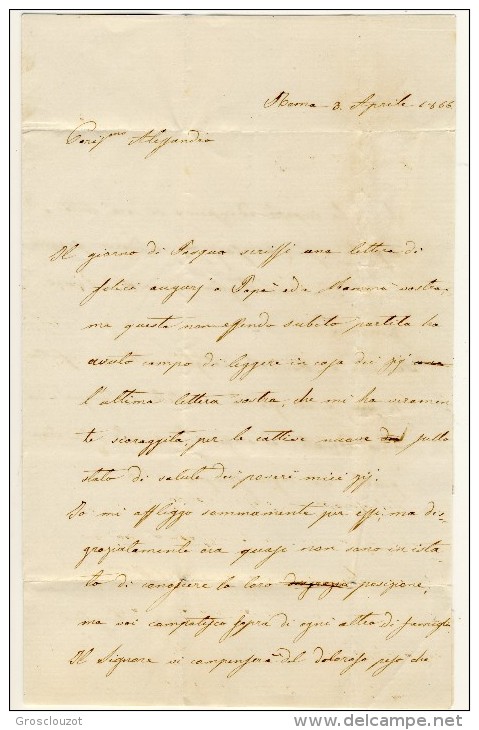 Roma 3. Aprile 1866
Cariss.mo Alessandro
Il giorno di Pasqua scrissi una lettera di
felici augurj a Papà ed a Mamma vostra,
ma questa non essendo subito partita ho
avuto campo di leggere in casa dei zij
l'ultima lettera vostra, che mi ha veramen
te scoraggita, per le cattive nuove sullo
stato di salute dei poveri miei zij.
Io mi affliggo sommamente per essi, ma dis-
graziatamente ora quasi non sono in ista
to di conoscere la loro posizione,
ma voi compatisco sopra di ogni altro di famiglia.
Il Signore vi compenserà del doloroso peso che
Grosclouzot
delcampe.net